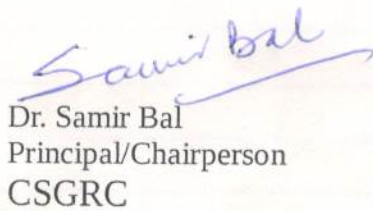 Samir Bal
Dr. Samir Bal
Principal/Chairperson
CSGRC